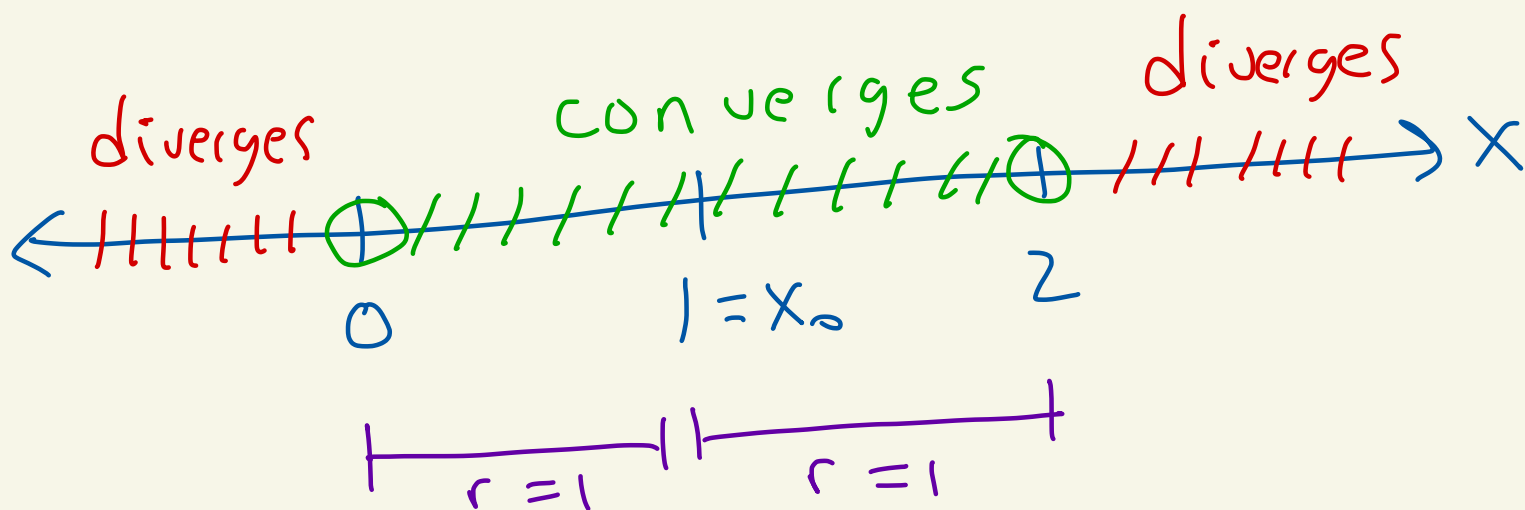 diverges converges diverges
x
0 1 = x₀ 2
r = 1 r = 1